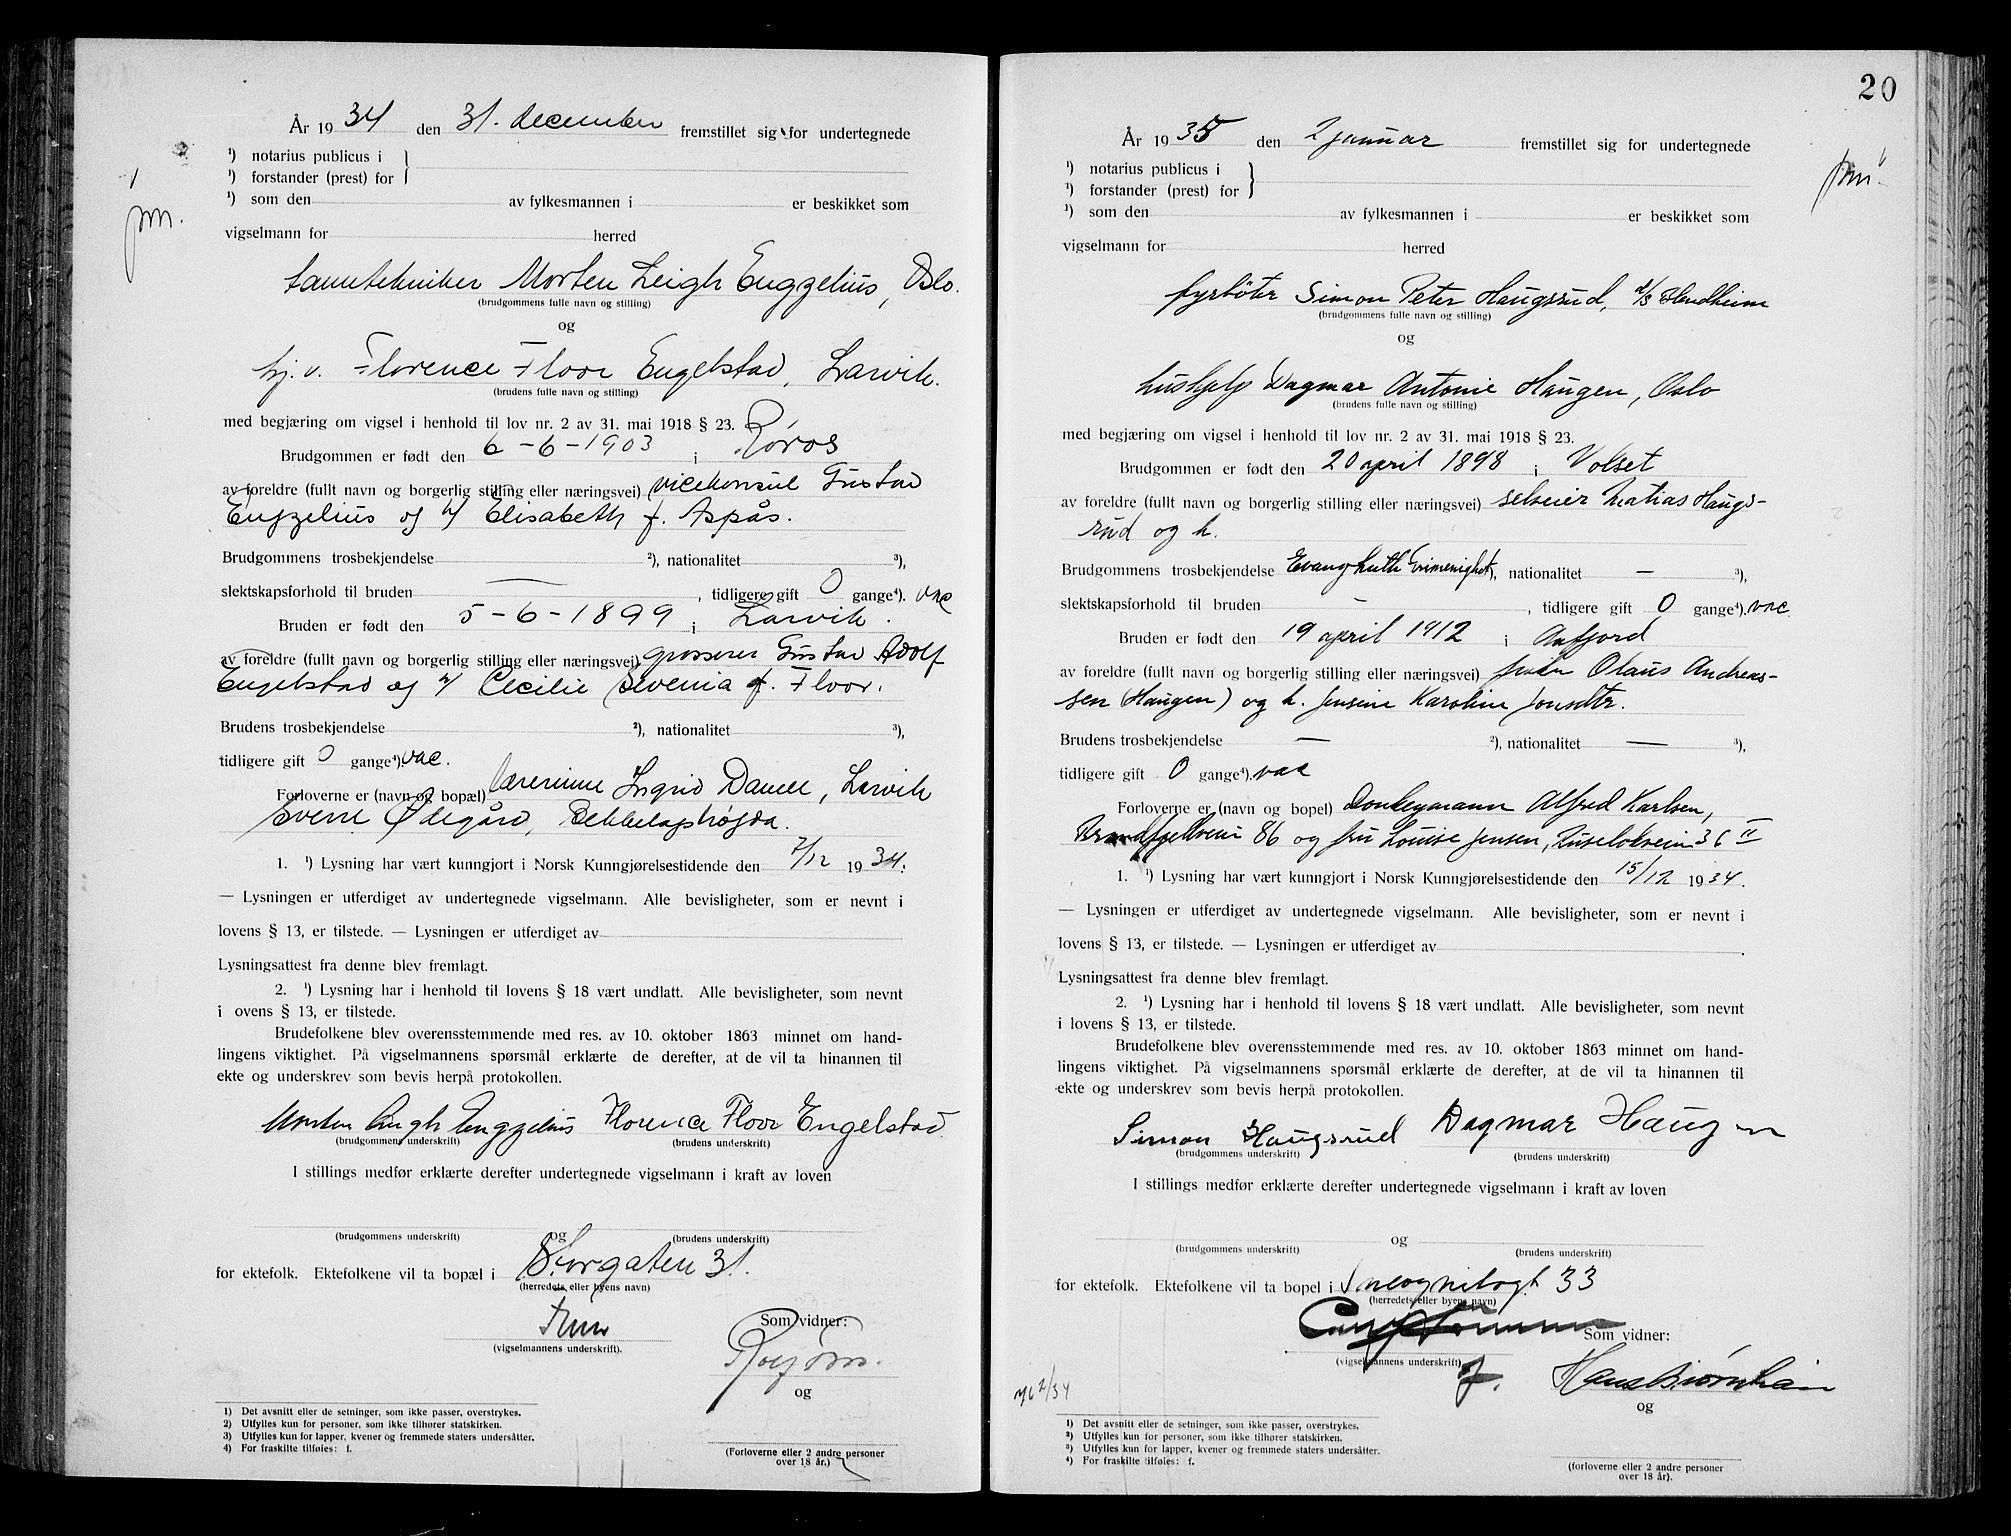 År 1934 den 31. december fremstillet sig for undertegnede
¹) notarius publicus i }
¹) forstander (prest) for
¹) som den av fylkesmannen i er beskikket som
pm.
vigselmann for herred
tanntekniker Morten Leigh Engzelius, Oslo.
(brudgommens fulle navn og stilling)
og
hj. v. Florence Floor Engelstad, Larvik.
(brudens fulle navn og stilling)
med begjæring om vigsel i henhold til lov nr. 2 av 31. mai 1918 § 23.
Brudgommen er født den 6-6-1903 i Røros
av foreldre (fullt navn og borgerlig stilling eller næringsvei) vicekonsul Gustav
Engzelius og h/ Elisabeth f. Aspås.
Brudgommens trosbekjendelse ²), nationalitet ³),
slektskapsforhold til bruden — , tidligere gift 0 gange⁴). vac
Bruden er født den 5-6-1899 i Larvik.
av foreldre (fullt navn og borgerlig stilling eller næringsvei) grosserer Gustav Adolf
Engelstad og h/ Cecilie Severnia f. Floor.
Brudens trosbekjendelse ²), nationalitet ³),
tidligere gift 0 gange⁴). vac.
Forloverne er (navn og bopæl) lærerinne Ingrid Danee, Larvik
Sverre Ødegård, Bekkelagshøgda.
1. ¹) Lysning har vært kunngjort i Norsk Kunngjørelsestidende den 7/12 1934.
— Lysningen er utferdiget av undertegnede vigselmann. Alle bevisligheter, som er nevnt i
lovens § 13, er tilstede. — Lysningen er utferdiget av
Lysningsattest fra denne blev fremlagt.
2. ¹) Lysning har i henhold til lovens § 18 vært undlatt. Alle bevisligheter, som nevnt
i ovens § 13, er tilstede.
Brudefolkene blev overensstemmende med res. av 10. oktober 1863 minnet om hand-
lingens viktighet. På vigselmannens spørsmål erklærte de derefter, at de vil ta hinannen til
ekte og underskrev som bevis herpå protokollen.
Morten Leigh Engzelius Florence Floor Engelstad
(brudgommens underskrift) (brudens underskrift)
I stillings medfør erklærte derefter undertegnede vigselmann i kraft av loven
og
(brudgommens underskrift) (brudens underskrift)
for ektefolk. Ektefolkene vil ta bopæl i Storgaten 31.
(herredets eller byens navn)
Som vidner:
(vigselmannens underskrift).
og
1) Det avsnitt eller de setninger, som ikke passer, overstrykes.
2) Utfylles kun for personer, som ikke tilhører statskirken.
3) Utfylles kun for lapper, kvener og fremmede staters undersåtter.
4) For fraskilte tilføies: f.
(Forloverne eller 2 andre personer
over 18 år.)
20
År 1935 den 2 januar fremstillet sig for undertegnede
¹) notarius publicus i }
¹) forstander (prest) for
¹) som den av fylkesmannen i er beskikket som
pm.
vigselmann for herred
fyrbøter Simon Peter Haugsrud, d/s Hundheim
(brudgommens fulle navn og stilling)
og
hushjelp Dagmar Antonie Haugen, Oslo
(brudens fulle navn og stilling)
med begjæring om vigsel i henhold til lov nr. 2 av 31. mai 1918 § 23.
Brudgommen er født den 20 april 1898 i Volset
av foreldre (fullt navn og borgerlig stilling eller næringsvei) selveier Matias Haugs-
rud og h.
Brudgommens trosbekjendelse Evang luth frimenighet ²), nationalitet — ³),
slektskapsforhold til bruden — , tidligere gift 0 gange⁴). vac
Bruden er født den 19 april 1912 i Aafjord
av foreldre (fullt navn og borgerlig stilling eller næringsvei) fisker Olaus Andreas-
sen (Haugen) og h. Jensine Karoline Jonsdtr.
Brudens trosbekjendelse — ²), nationalitet — ³),
tidligere gift 0 gange⁴). vac
Forloverne er (navn og bopel) Donkeymann Alfred Karlsen,
86 og fru Louise Jensen, Ruseløkveien 36 II
1. ¹) Lysning har vært kunngjort i Norsk Kunngjørelsestidende den 15/12 1934.
— Lysningen er utferdiget av undertegnede vigselmann. Alle bevisligheter, som er nevnt i
lovens § 13, er tilstede. — Lysningen er utferdiget av
Lysningsattest fra denne blev fremlagt.
2. ¹) Lysning har i henhold til lovens § 18 vært undlatt. Alle bevisligheter, som nevnt
i lovens § 13, er tilstede.
Brudefolkene blev overensstemmende med res. av 10. oktober 1863 minnet om hand-
lingens viktighet. På vigselmannens spørsmål erklærte de derefter, at de vil ta hinannen til
ekte og underskrev som bevis herpå protokollen.
Simon Haugsrud Dagmar Haugen
(brudgommens underskrift) (brudens underskrift)
I stillings medfør erklærte derefter undertegnede vigselmann i kraft av loven
og
(brudgommens underskrift) (brudens underskrift)
for ektefolk. Ektefolkene vil ta bopel i 33
(herredets eller byens navn)
Som vidner:
(vigselmannens underskrift)
f.
og
1) Det avsnitt eller de setninger, som ikke passer, overstrykes.
²) Utfylles kun for personer, som ikke tilhører statskirken.
³) Utfylles kun for lapper, kvener og fremmede staters undersåtter.
⁴) For fraskilte tilføies: f.
(forloverne eller 2 andre personer
over 18 år).